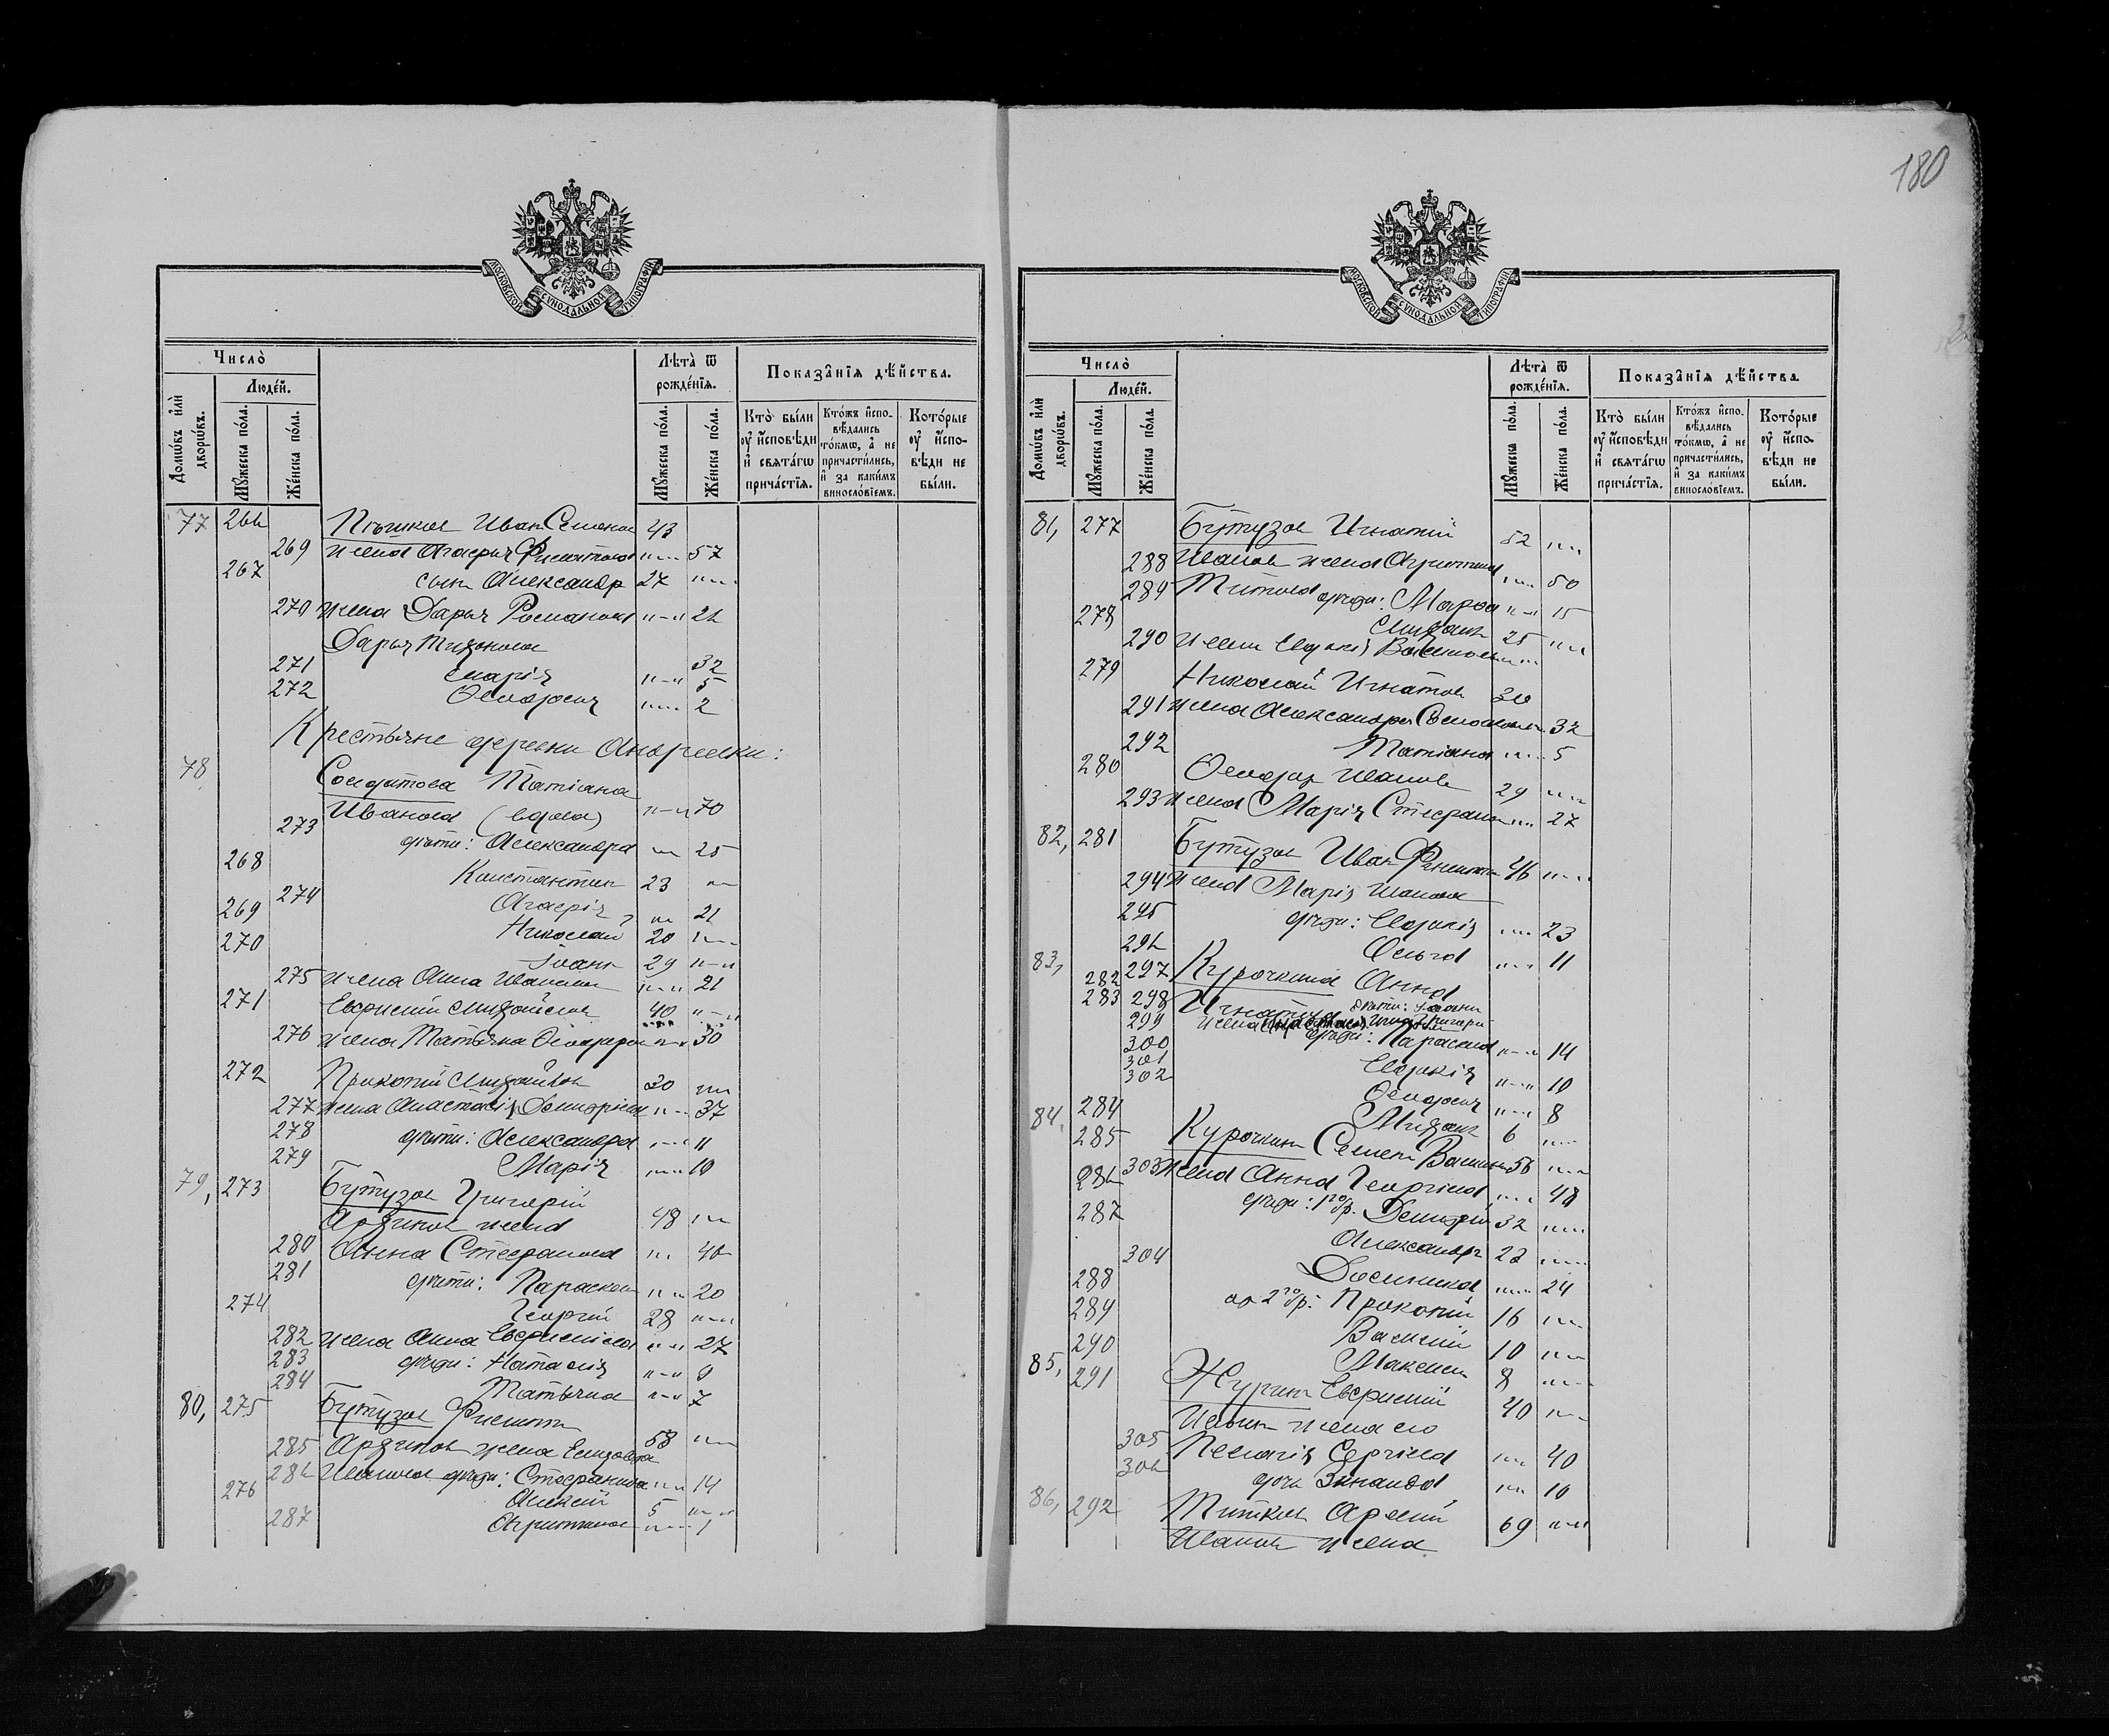 180
МОСКОВСКОЙ СѴНОДАЛЬНОЙ ТИПОГРАФІИ
Число̀
Людей.
Домѡвъ илѝ дворѡвъ.
Мꙋжеска по́ла.
Же́нска по́ла.
Лѣта̀ ѿ рожде́нїѧ.
Мꙋжеска по́ла.
Же́нска по́ла.
Показа̑нїѧ дѣ́йства.
Кто̀ бы́ли ᲂу҆ и҆сповѣди и҆ свѧта́гѡ прича́стїѧ.
Кто́жъ и҆сповѣ́дались то́кмѡ, а҆ не причасти́лись, и҆ за каки́мъ винослові́емъ.
Кото́рые ᲂу҆ и҆сповѣди не бы́ли.
77 266 Пѣшков Иван 43
269 жена Агафья 57
267 сын Александр 27
270 жена Дарья Романова 26
Дарья Тихонова
271 Марія 32 5
272 Ѳеодосія 2
Крестьяне деревни Андреевки:
78 Солдатова Татіана
Иванова (вдова) 70
273 дѣти: Александра 25
268 Константин 23
274 Агафія 21
269 Николай 20
270 Іоанн 29
275 жена Анна Иванова 21
271 Евфимій Михайлов 40
276 жена Татьяна Ѳеодорова 30
272 Прокопій Михайлов 30
277 жена Анастасія Димитріева 37
278 дѣти: Александра 11
279 Марія 10
79, 273 Бутузов Григорій
Архипов жена 48
280 Анна Стефанова 46
281 дѣти: Параскева 20
274 Георгій 28
282 жена Анна Евфиміева 27
283 дѣти: Наталія 9
284 Татьяна 7
80, 275 Бутузов Филипп
285 Архипов жена Елизавета 58
286 Иванова дѣти: Стефанида 14
276 Алексій 5
287 Агриппина 1
Число̀
Людей.
Домѡвъ илѝ дворѡвъ.
Мꙋжеска по́ла.
Же́нска по́ла.
Лѣта̀ ѿ рожде́нїѧ.
Мꙋжеска по́ла.
Же́нска по́ла.
Показа̑нїѧ дѣ́йства.
Кто̀ бы́ли ᲂу҆ и҆сповѣди и҆ свѧта́гѡ прича́стїѧ.
Кто́жъ и҆сповѣ́дались то́кмѡ, а҆ не причасти́лись, и҆ за каки́мъ винослові́емъ.
Кото́рые ᲂу҆ и҆сповѣди не бы́ли.
81, 277 Бутузов Игнатій 52
288 Иванов жена Агриппина 50
289 Титова дѣти: Марфа 15
278 Михаил 25
290 жена Евдокія
279 Николай Игнатов 30
291 жена Александра 32
292 Татіана 5
280 Ѳеодор Иванов 29
293 жена Марія Стефанова 27
82, 281 Бутузов Иван Филиппов 46
294 жена Марія Иванова
295 дѣти: Евдокія 23
296 Ольга 11
83, 297 Курочкина Анна
282
283 298 Игнатова дѣти: Іоанн
299 жена
300 дѣти: Параскева 14
301 Евдокія 10
302 Ѳеодосія 8
284 Михаил 6
84. 285 Курочкин Семен 56
303 жена Анна Георгіева 48
286 дѣти: 1го бр. Димитрій 32
287 Александр 23
304 Досифея 24
288 от 2го бр: Прокопій 16
289 Василій 10
290 Максим 8
85, 291 Журин Евфимій 40
Ильин жена его
305 Пелагія Сергіева 40
306 дочь Зинаида 10
86, 292 Титков Арсеній 69
Иванов жена